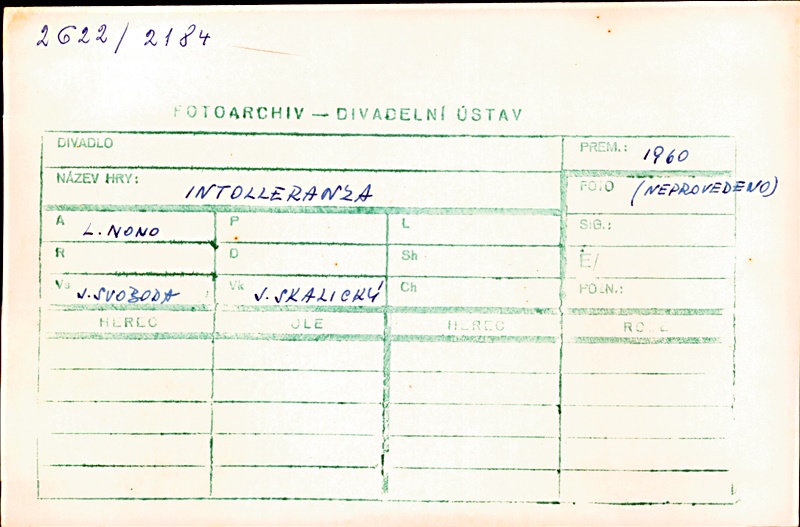 2622/2184
FOTOARCHIV — DIVADELNÍ ÚSTAV
DIVADLO
PREM.: 1960
NÁZEV HRY: INTOLLERANZA
FOTO (NEPROVEDENO)
A L. NONO
P
L
SIG.:
R
D
Sh
E/
Vs J. SVOBODA
Vk J. SKALICKÝ
Ch
POZN.:
HEREC
ROLE
HEREC
ROLE